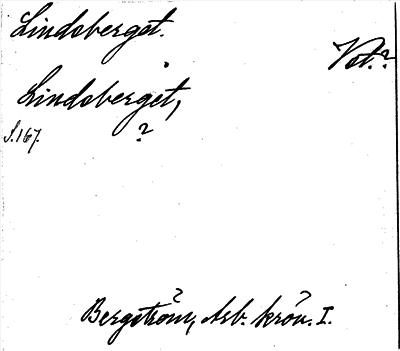 Lindsberget.
Vst.?
Lindsberget,
S. 167. ?
Bergström, Arb. krön. I.